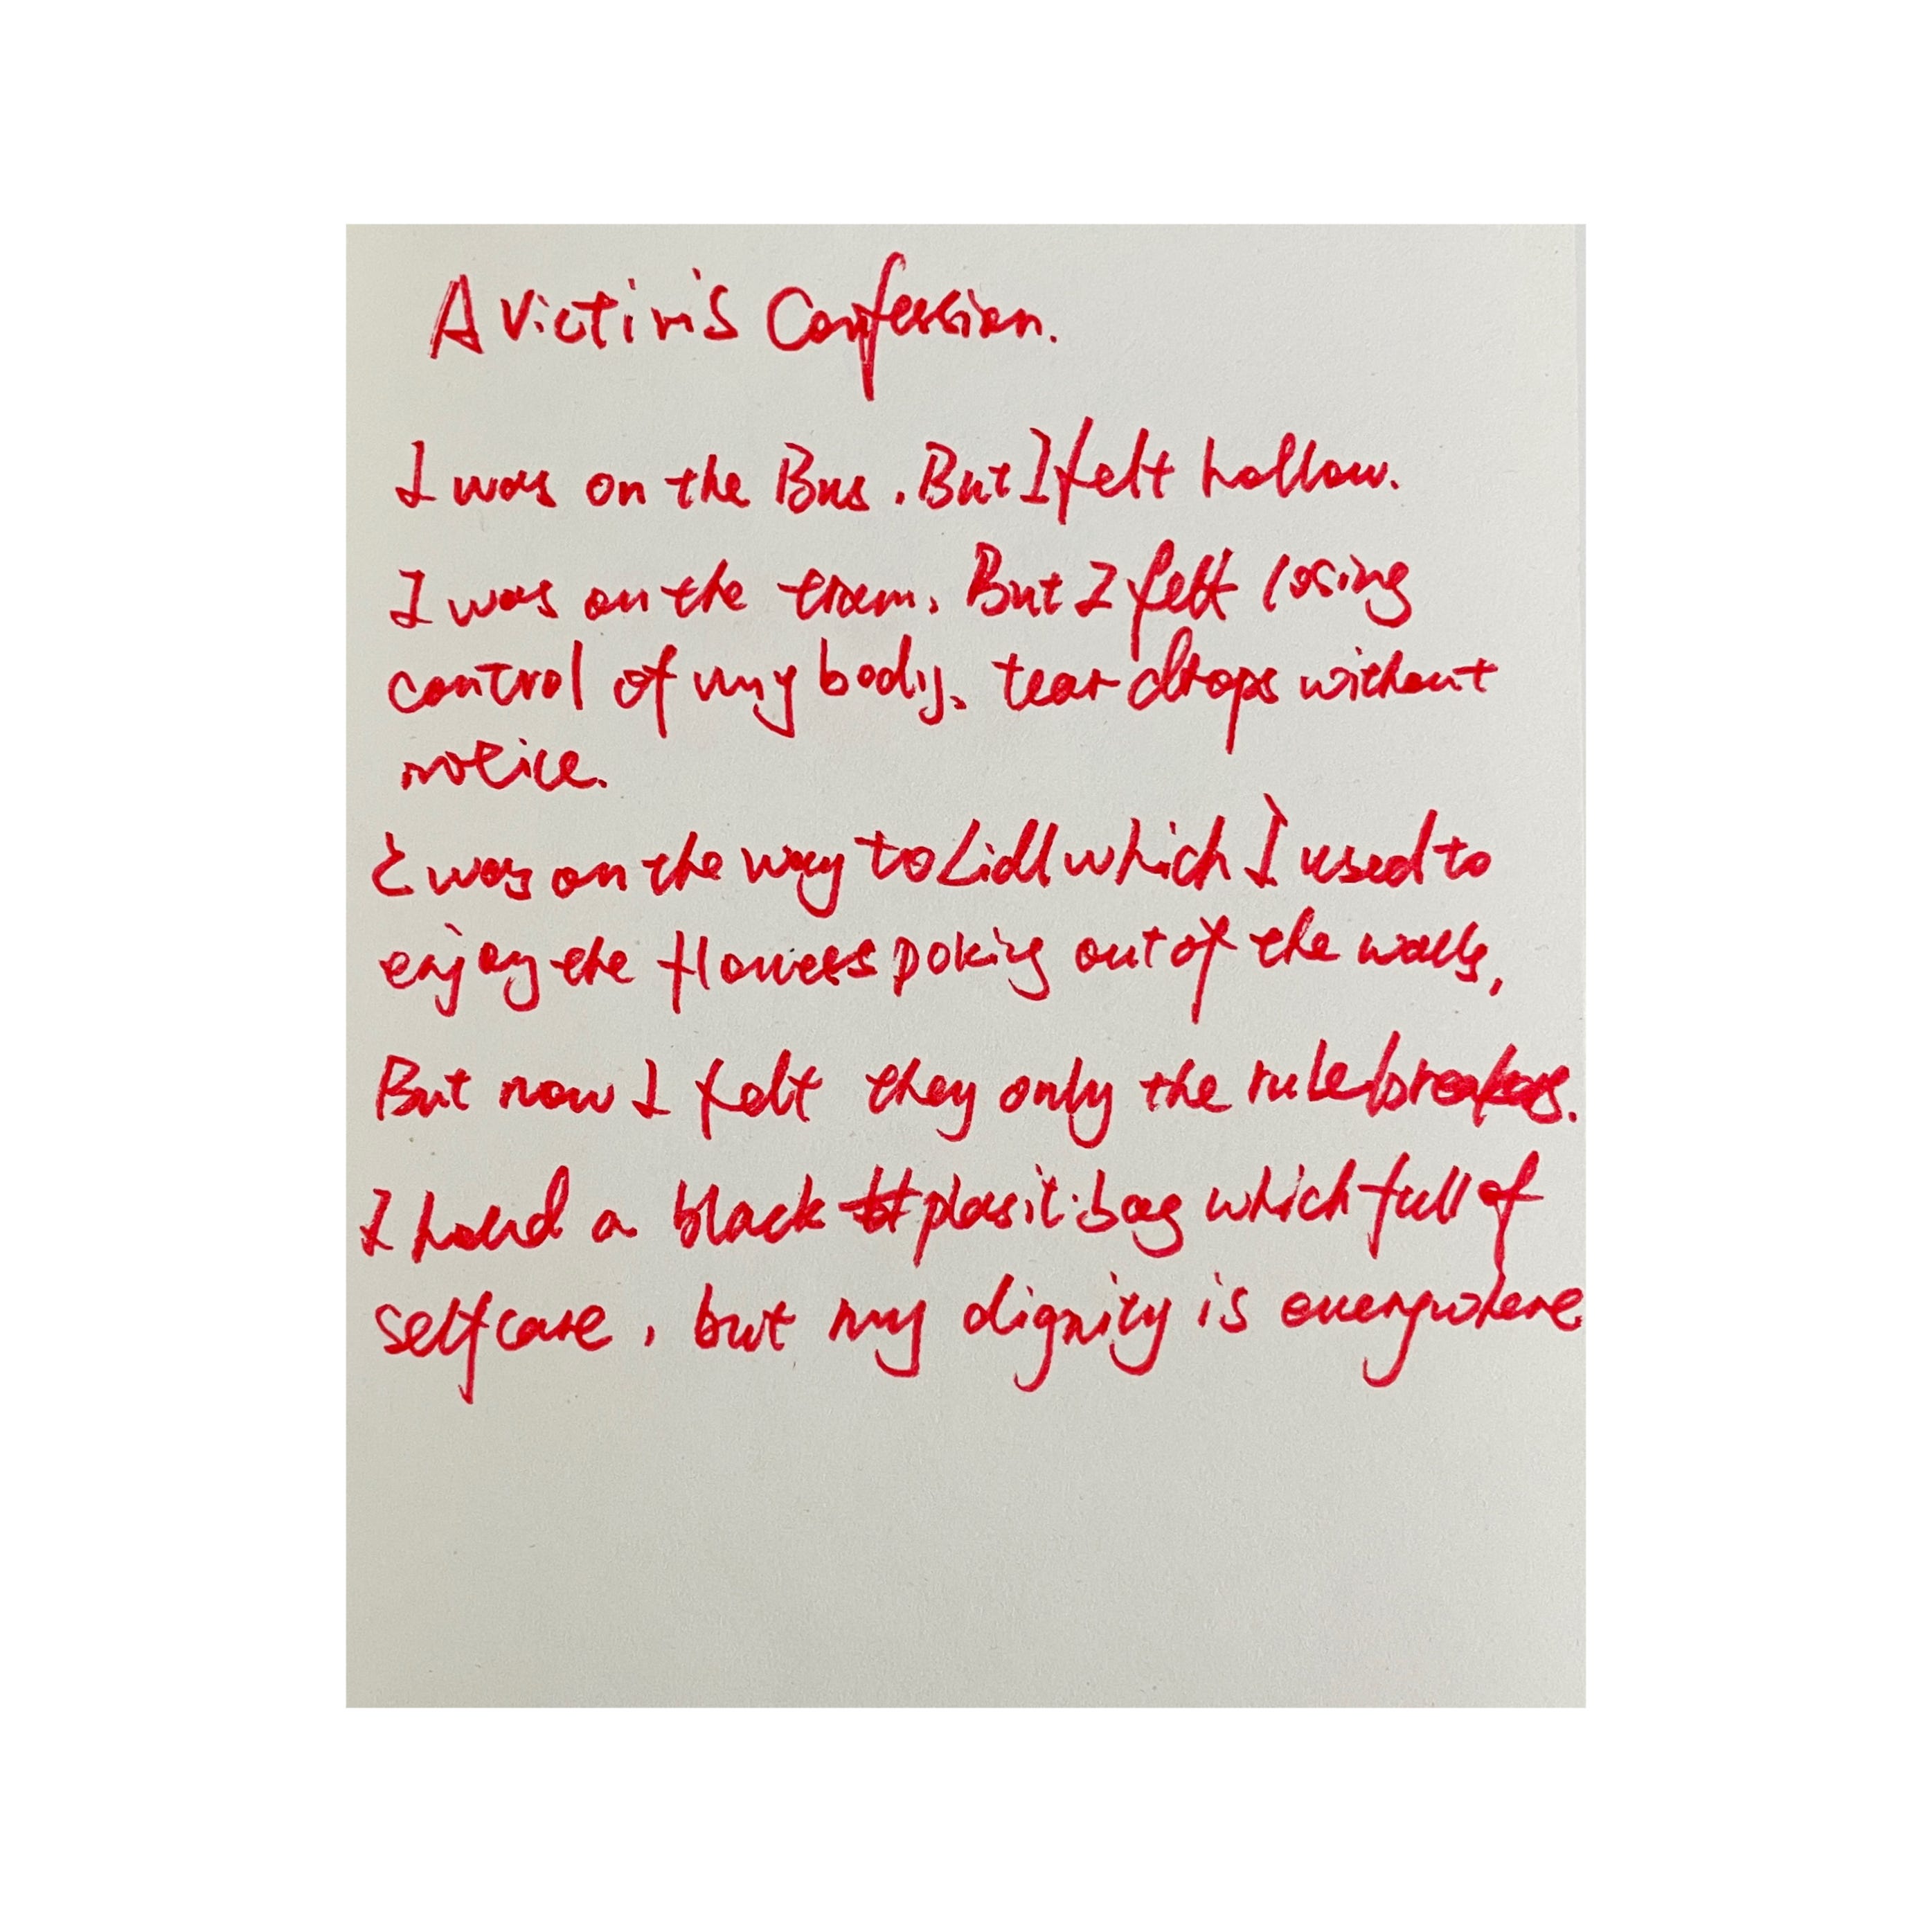 A Victim's Confession.
I was on the Bus. But I felt hollow.
I was on the tram. But I felt losing
control of my body. tear drops without
notice.
I was on the way to Lidl which I used to
enjoy the flowers poking out of the walls,
But now I felt they only the rule breakers.
I hold a black plasit bag which full of
selfcare, but my dignity is everywhere